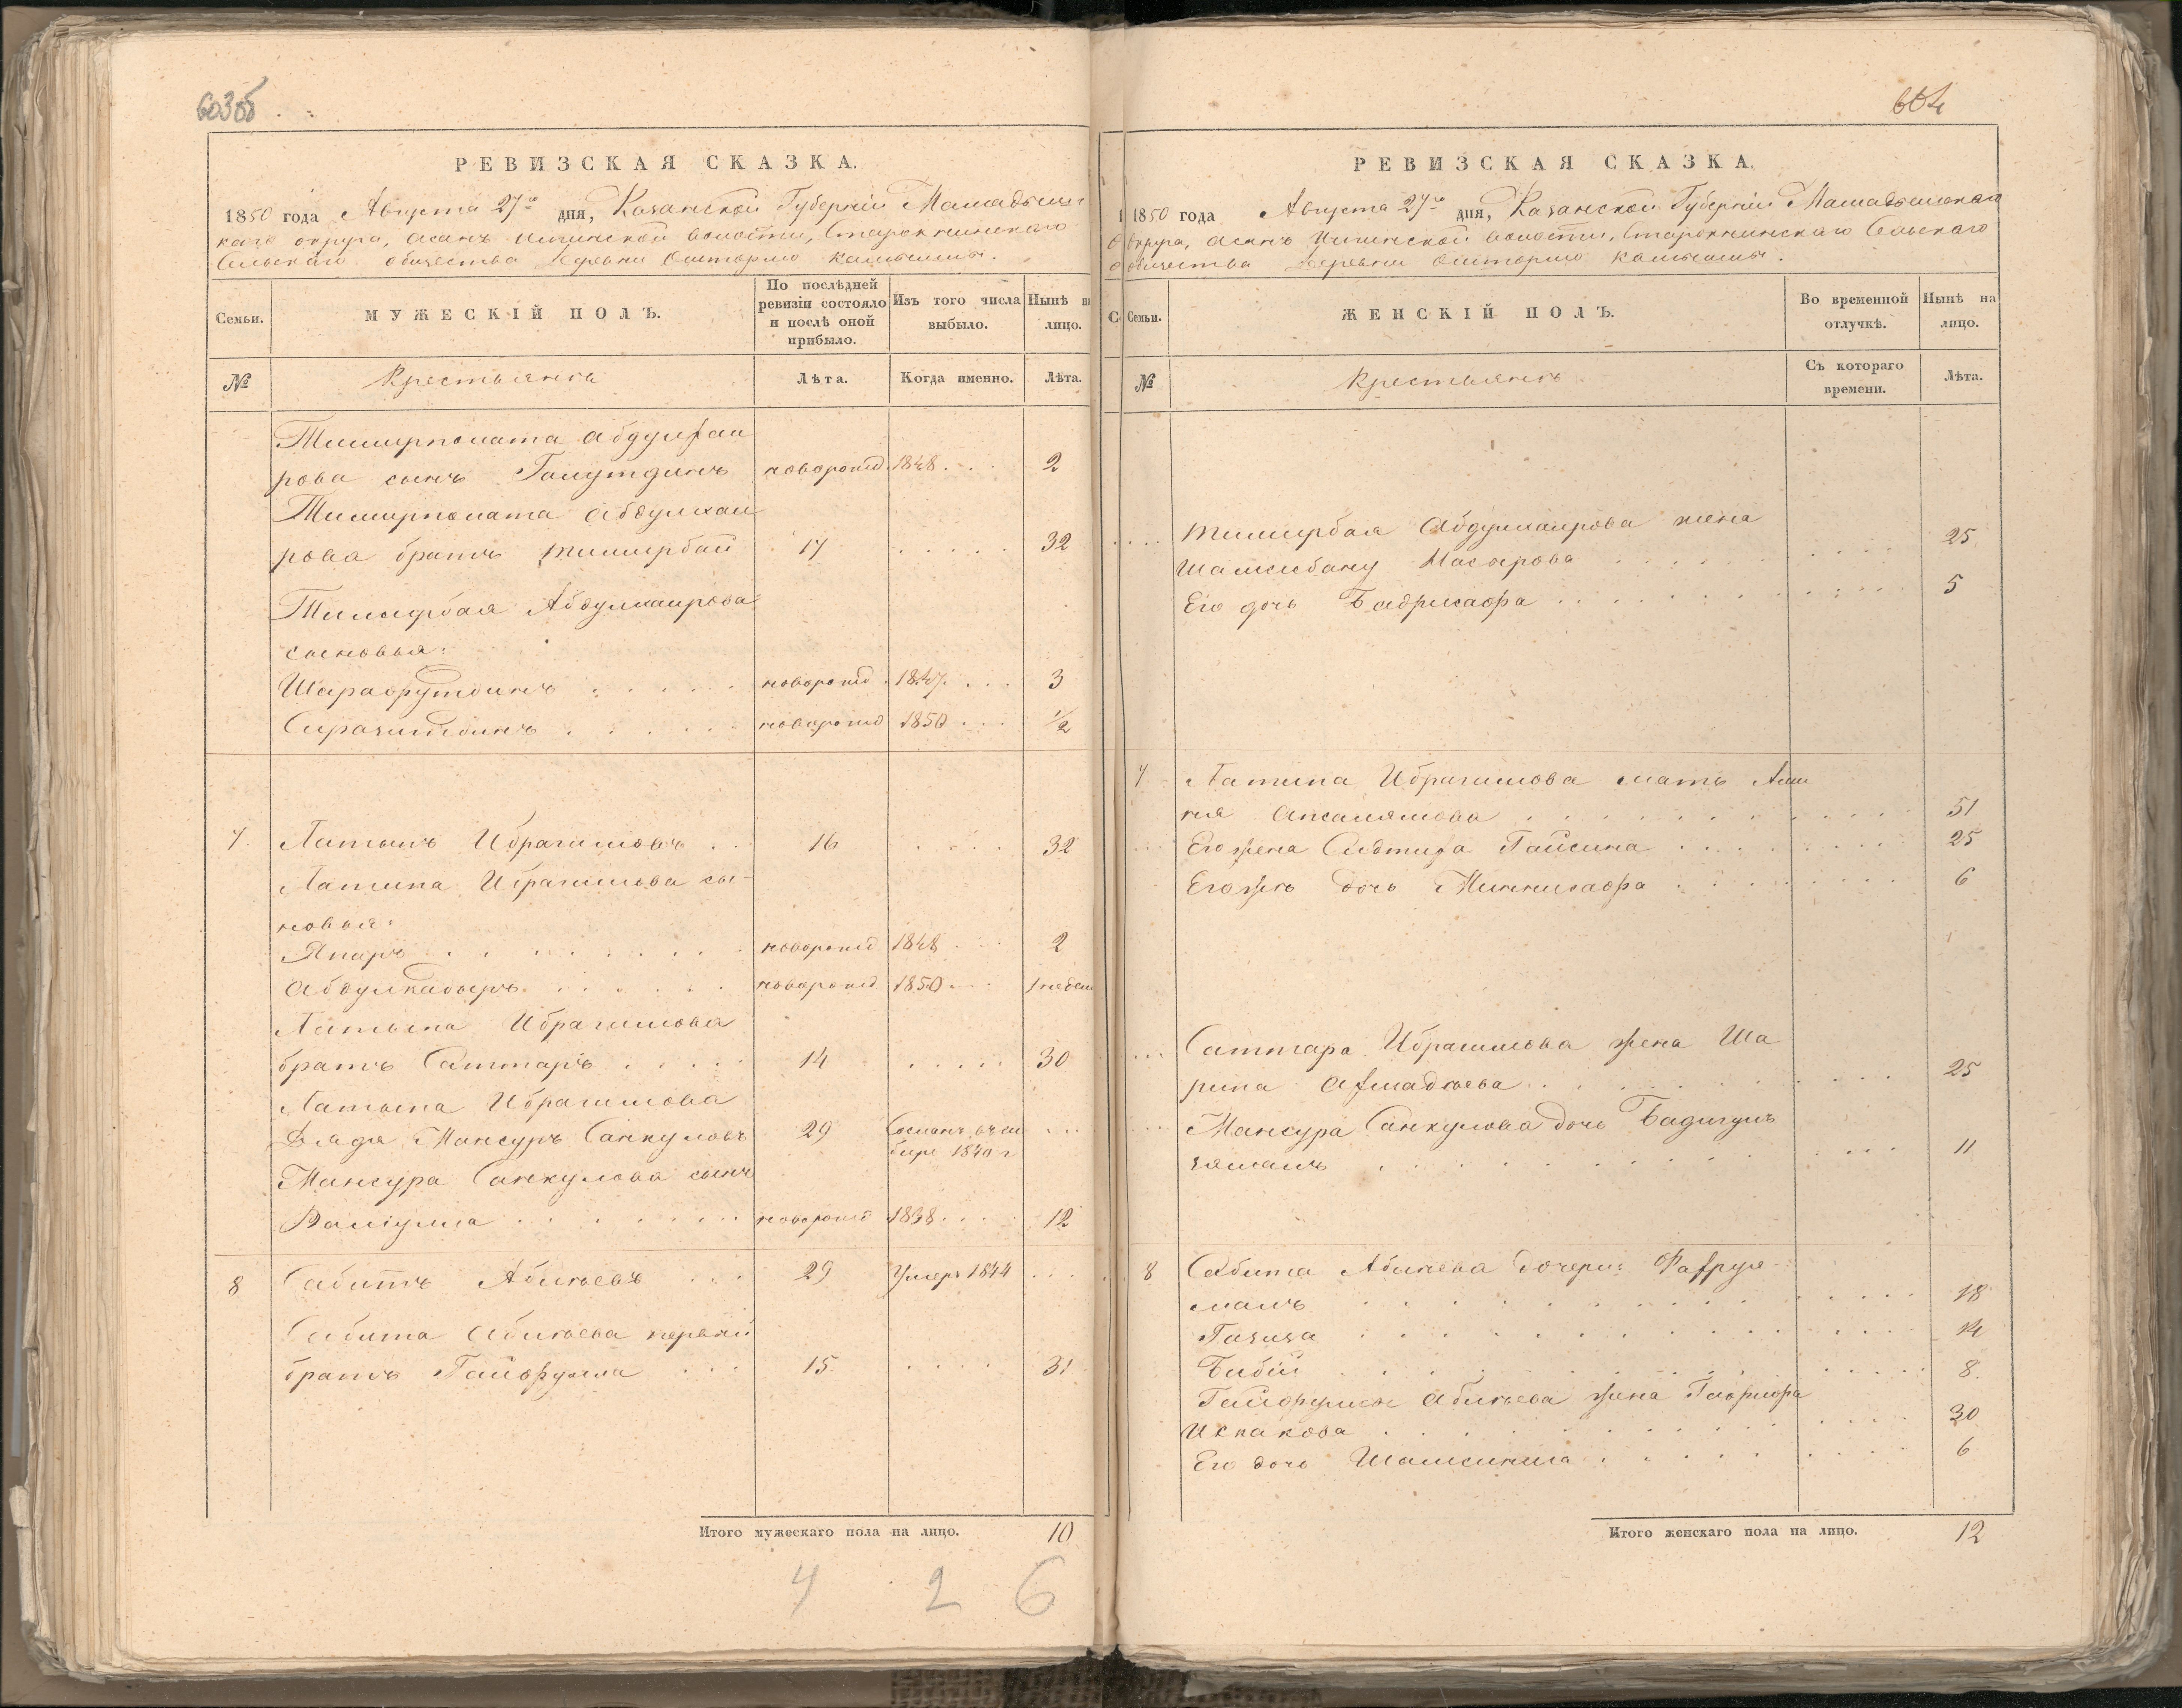 603об
РЕВИЗСКАЯ СКАЗКА.
1850 года Августа 27го дня, Казанской Губерніи Мамадышс
каго округа, Асанъ Волости, Старокнинскаго
Сельскаго общества деревни
Семьи.
МУЖЕСКІЙ ПОЛЪ.
По послѣдней ревизіи состояло и послѣ оной прибыло.
Изъ того числа выбыло.
Нынѣ на лицо.
№
Крестьянъ
Лѣта.
Когда именно.
Лѣта.
Тимирполата Абдулхаи
рова сынъ новорожд. 1848 2
Тимирполата Абдулхаи
рова братъ Тимирбай 17 32
Тимирбая Абдулхаирова
сыновья:
Шарафутдинъ новорожд. 1847 3
Сиразитдинъ новорожд 1850 1/2
7 Латыпъ Ибрагимовъ 16 32
Латыпа Ибрагимова сы-
новья:
Япаръ новорожд 1848 2
Абдулкадыръ новорожд 1850 1 недел
Латыпа Ибрагимова
братъ Саттаръ 14 30
Латыпа Ибрагимова
дядя Мансуръ Санкуловъ 29 Сосланъ въ Си
бирь 1840 г
Мансура Санкулова сынъ
Валіулла новорожд 1838 12
8 Сабитъ Абикѣевъ 29 Умеръ 1844
Сабита Абикѣева первый
братъ Гайфулла 15 31
Итого мужескаго пола на лицо. 10
4 2 6
604
РЕВИЗСКАЯ СКАЗКА.
1850 года Августа 27го дня, Казанской Губерніи Мамадышскаго
округа, Асанъ Волости, Старокнинскаго Сельскаго
общества деревни
Семьи.
ЖЕНСКІЙ ПОЛЪ.
Во временной отлучкѣ.
Нынѣ на лицо.
№
Крестьянъ
Съ котораго времени.
Лѣта.
Тимирбая Абдулхаирова жена
Шамсибану Насырова 25
Его дочь Бадрисафа 5
7 Латыпа Ибрагимова мать Ами
ня 51
Его жена Гайсина 25
Его же дочь Миннисафа 6
Саттара Ибрагимова жена Ша
рипа Ахмадѣева 25
Мансура Санкулова дочь Бадигуль
зямалъ 11
8 Сабита Абикѣева дочери: Фахруя
малъ 18
Газиза 14
Бибій 8
Гайфуллы Абикѣева жена
Исхакова 30
Его дочь 6
Итого женскаго пола на лицо. 12